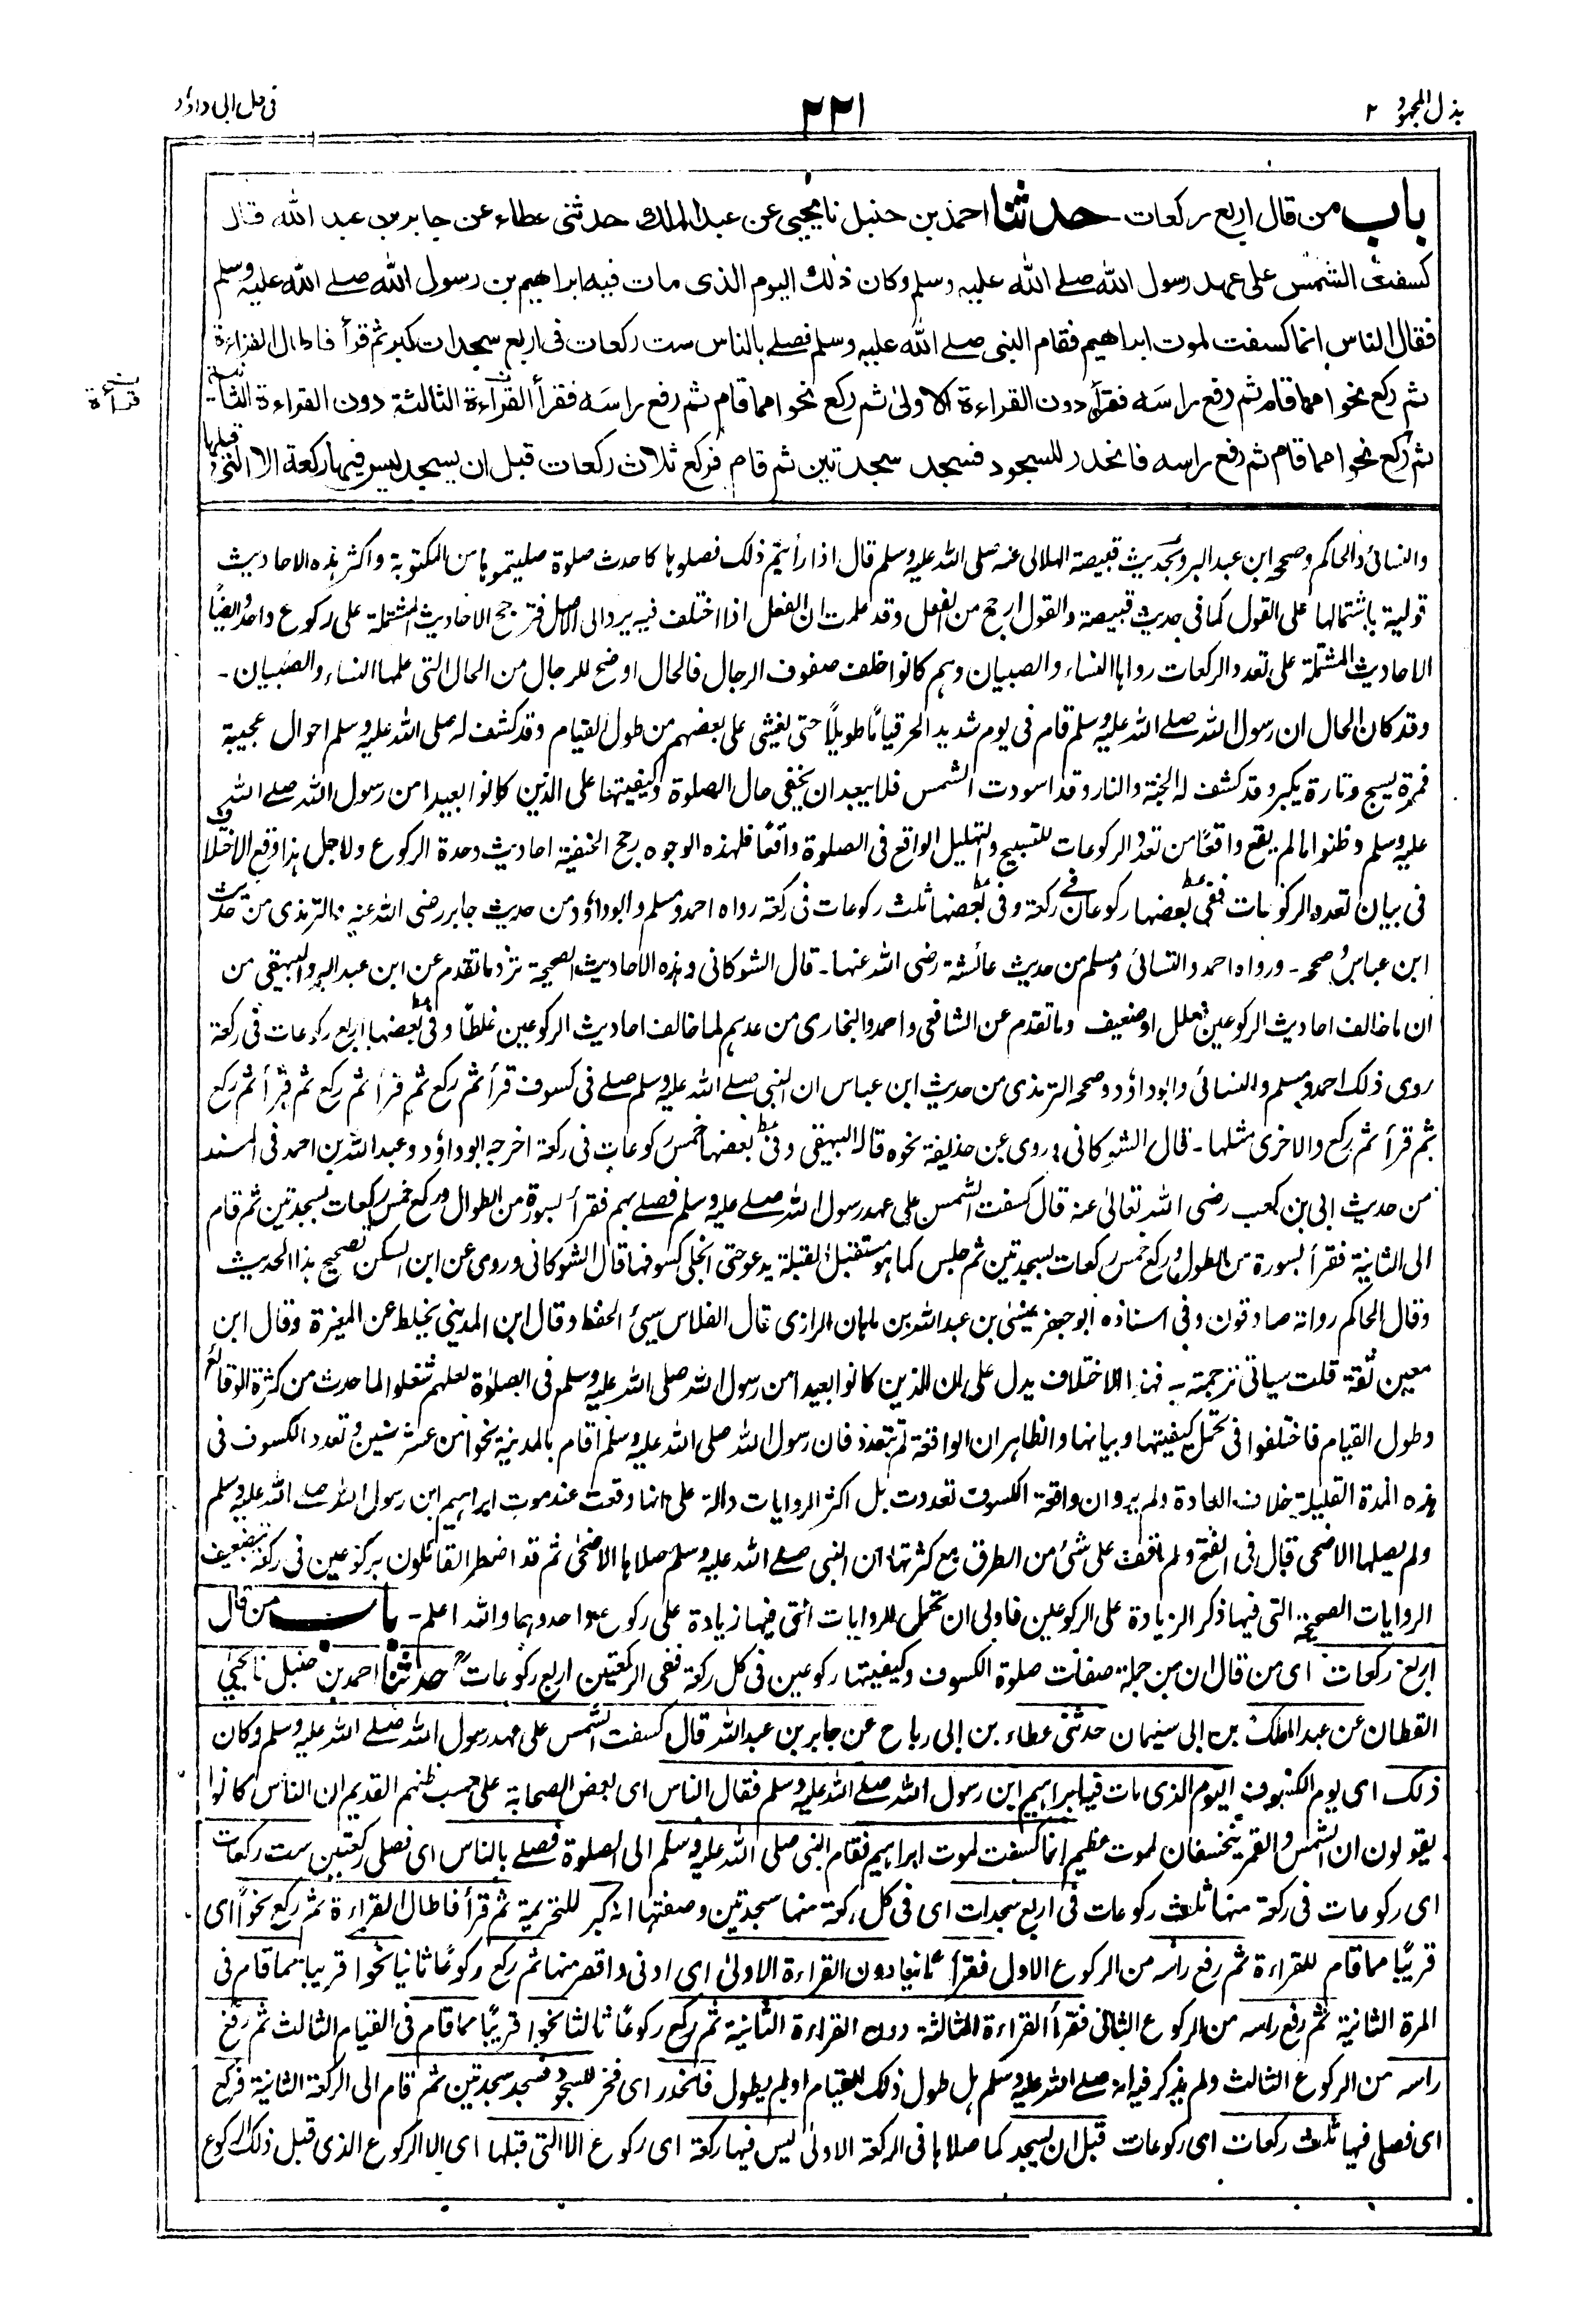 بذل المجهود ٢
٢٢١
فی حل ابی داؤد
باب من قال اربع ركعات - حدثنا احمد بن حنبل نا يحيى عن عبد الملك حدثنى عطاء عن جابر بن عبد الله قال
كسفت الشمس على عهد رسول الله صلے الله عليه وسلم وكان ذلك اليوم الذى مات فيه ابراهيم بن رسول الله صلے الله عليه وسلم
فقال الناس انما كسفت لموت ابراهيم فقام النبى صلے الله عليه وسلم فصلے بالناس ست ركعات فى اربع سجدات كبر ثم قرأ فاطال القراءة
ثم ركع نحوا مما قام ثم رفع راسه فقرأ دون القراءة الاولىٰ ثم ركع نحوا مما قام ثم رفع راسه فقرأ القراءة الثالثة دون القراءة الثانية
نسخة
قرأة
ثم ركع نحوا مما قام ثم رفع راسه فانحدر للسجود فسجد سجدتين ثم قام فركع ثلاث ركعات قبل ان يسجد ليس فيها ركعة الا التى قبلها
والنسائی والحاكم وصححه ابن عبد البر وبحديث قبيصة الهلالی عنه صلی الله عليه وسلم قال اذا رأيتم ذلك فصلوها كاحدث صلوة صليتموها من المكتوبة واكثر هذه الاحاديث
قولية باشتمالها علی القول كما فی حديث قبيصة والقول ارجح من الفعل وقد علمت ان الفعل اذا اختلف فيه يرد الی الاصل فترجح الاحاديث المشتملة علی ركوع واحد وايضاً
الاحاديث المشتملة علی تعدد الركعات رواها النساء والصبيان وهم كانوا خلف صفوف الرجال فالحال اوضح للرجال من الحال التی علمها النساء والصبيان -
وقد كان الحال ان رسول الله صلے الله عليه وسلم قام فی يوم شديد الحر قياماً طويلاً حتی يغشی علی بعضهم من طول القيام وقد كشف له صلی الله عليه وسلم احوال عجيبة
فمرة يسبح وتارة يكبر وقد كشف له الجنة والنار وقد اسودت الشمس فلا يبعد ان يخفی حال الصلوة وكيفيتها علی الذين كانوا بعيدا من رسول الله صلے الله
عليه وسلم وظنوا ما لم يقع واقعاً من تعدد الركوعات للتسبيح والتهليل الواقع فی الصلوة واقعاً فلهذه الوجوه رجح الحنفية احاديث وحدة الركوع ولاجل هذا وقع الاختلاف
فی بيان تعدد الركوعات ففی بعضها ركوعان فے ركعة وفی بعضها ثلث ركوعات فی ركعة رواه احمد ومسلم وابو داؤد من حديث جابر رضی الله عنه والترمذی من حديث
ابن عباس وصححه - ورواه احمد والنسائی ومسلم من حديث عائشة رضی الله عنها - قال الشوكانی وهذه الاحاديث الصحيحة ترد ما تقدم عن ابن عبد البر والبيهقی من
ان ما خالف احاديث الركوعين معلل او ضعيف وما تقدم عن الشافعی واحمد والبخاری من عدهم لما خالف احاديث الركوعين غلطاً وفی بعضها اربع ركوعات فی ركعة
روی ذلك احمد ومسلم والنسائی وابو داؤد وصححه الترمذی من حديث ابن عباس ان النبی صلے الله عليه وسلم صلے فی كسوف قرأ ثم ركع ثم قرأ ثم ركع ثم قرأ ثم ركع
ثم قرأ ثم ركع والاخری مثلها - قال الشوكانی وروی عن حذيفة نحوه قاله البيهقی وفی بعضها خمس ركوعات فی ركعة اخرجه ابو داؤد وعبد الله بن احمد فی المسند
من حديث ابی بن كعب رضی الله تعالیٰ عنه قال كسفت الشمس علی عهد رسول الله صلے عليه وسلم فصلے بهم فقرأ بسورة من الطوال وركع خمس ركعات بسجدتين ثم قام
الی الثانية فقرأ بسورة من الطول وركع خمس ركعات بسجدتين ثم جلس كما هو مستقبل القبلة يدعو حتی انجلی كسوفها قال الشوكانی وروی عن ابن السكن تصحيح هذا الحديث
وقال الحاكم رواته صادقون وفی اسناده ابو جعفر عيسیٰ بن عبد الله بن ماهان الرازی قال الفلاس سیئ الحفظ وقال ابن المدينی يخلط عن المغيرة وقال ابن
معين ثقة قلت سياتی ترجمته - فهذا الاختلاف يدل علی ان الذين كانوا بعيدا من رسول الله صلی الله عليه وسلم فی الصلوة لعلهم شغلوا لما حدث من كثرة الوقائع
وطول القيام فاختلفوا فی تحمل كيفيتها وبيانها والظاهر ان الواقعة لم تتعدد فان رسول الله صلی الله عليه وسلم اقام بالمدينة نحوا من عشر سنين وتعدد الكسوف فی
هذه المدة القليلة خلاف العادة ولم يرو ان واقعة الكسوف تعددت بل اكثر الروايات دالة علی انها وقعت عند موت ابراهيم ابن رسول الله صلے الله عليه وسلم
ولم يصلها الا ضحی قال فی الفتح ولم اقف علی شئ من الطرق مع كثرتها ان النبی صلے الله عليه وسلم صلاها الا ضحی ثم قد اضطر القائلون بركوعين فی ركعة بتضعيف
الروايات الصحيحة التی فيها ذكر الزيادة علی الركوعين فاولی ان تحمل الروايات التی فيها زيادة علی ركوع واحد وهما والله اعلم - باب من قال
اربع ركعات ای من قال ان من جملة صفات صلوة الكسوف وكيفيتها ركوعين فی كل ركعة ففی الركعتين اربع ركوعات حدثنا احمد بن حنبل نا يحيیٰ
القطان عن عبد الملك بن ابی سليمان حدثنی عطاء بن ابی رباح عن جابر بن عبد الله قال كسفت الشمس علی عهد رسول الله صلے الله عليه وسلم وكان
ذلك ای يوم الكسوف اليوم الذی مات فيه ابراهيم ابن رسول الله صلے الله عليه وسلم فقال الناس ای بعض الصحابة علی حسب ظنهم القديم ان الناس كانوا
يقولون ان الشمس والقمر ينخسفان لموت عظيم انما كسفت لموت ابراهيم فقام النبی صلی الله عليه وسلم الی الصلوة فصلے بالناس ای فصلی ركعتين ست ركعات
ای ركوعات فی ركعة منها ثلث ركوعات فی اربع سجدات ای فی كل ركعة منها سجدتين وصفتها انه كبر للتحريمة ثم قرأ فاطال القراءة ثم ركع نحواً ای
قريباً مما قام للقراءة ثم رفع راسه من الركوع الاول فقرأ ثانيا دون القراءة الاولیٰ ای ادنی واقصر منها ثم ركع ركوعاً ثانيا نحوا قريبا مما قام فی
المرة الثانية ثم رفع راسه من الركوع الثانی فقرأ القراءة الثالثة دون القراءة الثانية ثم ركع ركوعاً ثالثا نحوا قريباً مما قام فی القيام الثالث ثم رفع
راسه من الركوع الثالث ولم يذكر فيه انه صلے الله عليه وسلم هل طول ذلك القيام او لم يطول فانحدر ای فخر للسجود فسجد سجدتين ثم قام الی الركعة الثانية فركع
ای فصلی فيها ثلث ركعات ای ركوعات قبل ان يسجد كما صلاها فی الركعة الاولیٰ ليس فيها ركعة ای ركوع الا التی قبلها ای الا الركوع الذی قبل ذلك الركوع